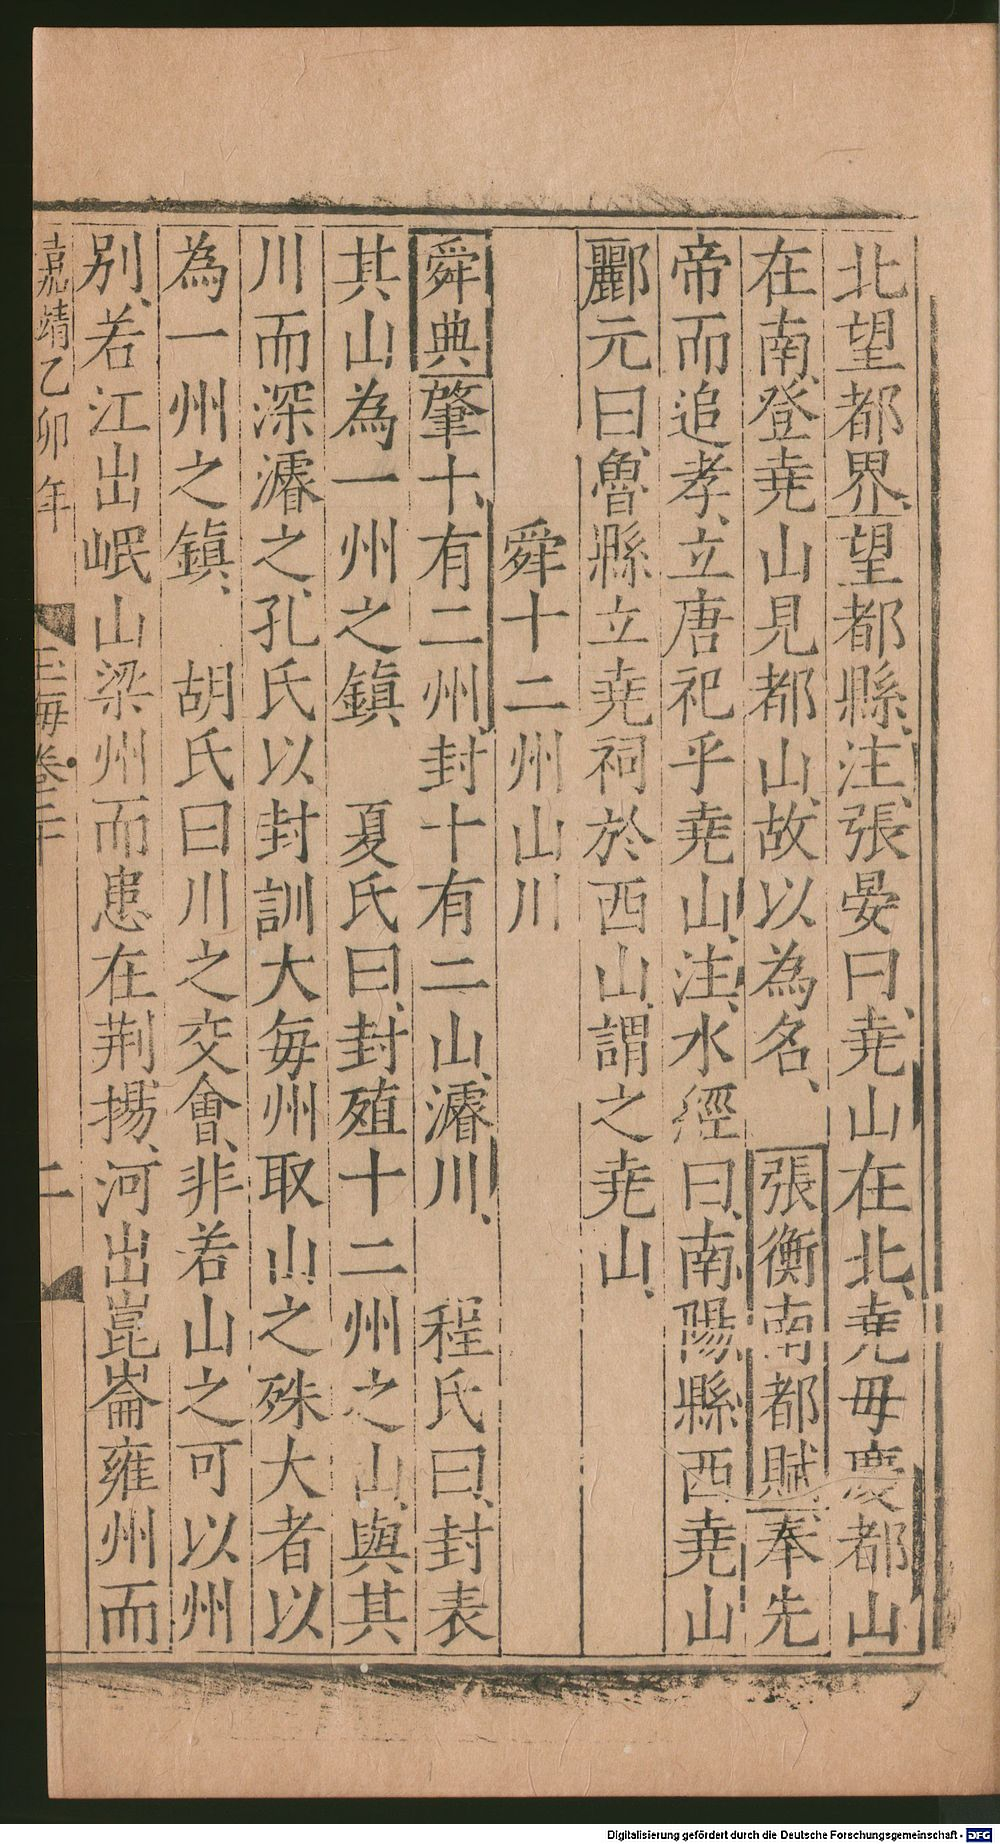 北望都界、望都縣、注、張晏曰、堯山在北、堯母慶都山
在南、登堯山見都山、故以為名、　張衡南都賦、奉先
帝而追孝、立唐祀乎堯山、注、水經曰、南陽縣西堯山
酈元曰、魯縣立堯祠於西山、謂之堯山、
舜十二州山川
舜典肇十、有二州、封十有二山、濬川、　程氏曰、封表
其山為一州之鎮　夏氏曰、封殖十二州之山、與其
川而深濬之、孔氏以封訓大每州取山之殊大者以
為一州之鎮、　胡氏曰川之交會、非若山之可以州
別、若江出岷山梁州而患在荆揚、河出崑崙雍州而
嘉靖乙卯年　玉海卷二十　二
Digitalisierung gefördert durch die Deutsche Forschungsgemeinschaft - DFG